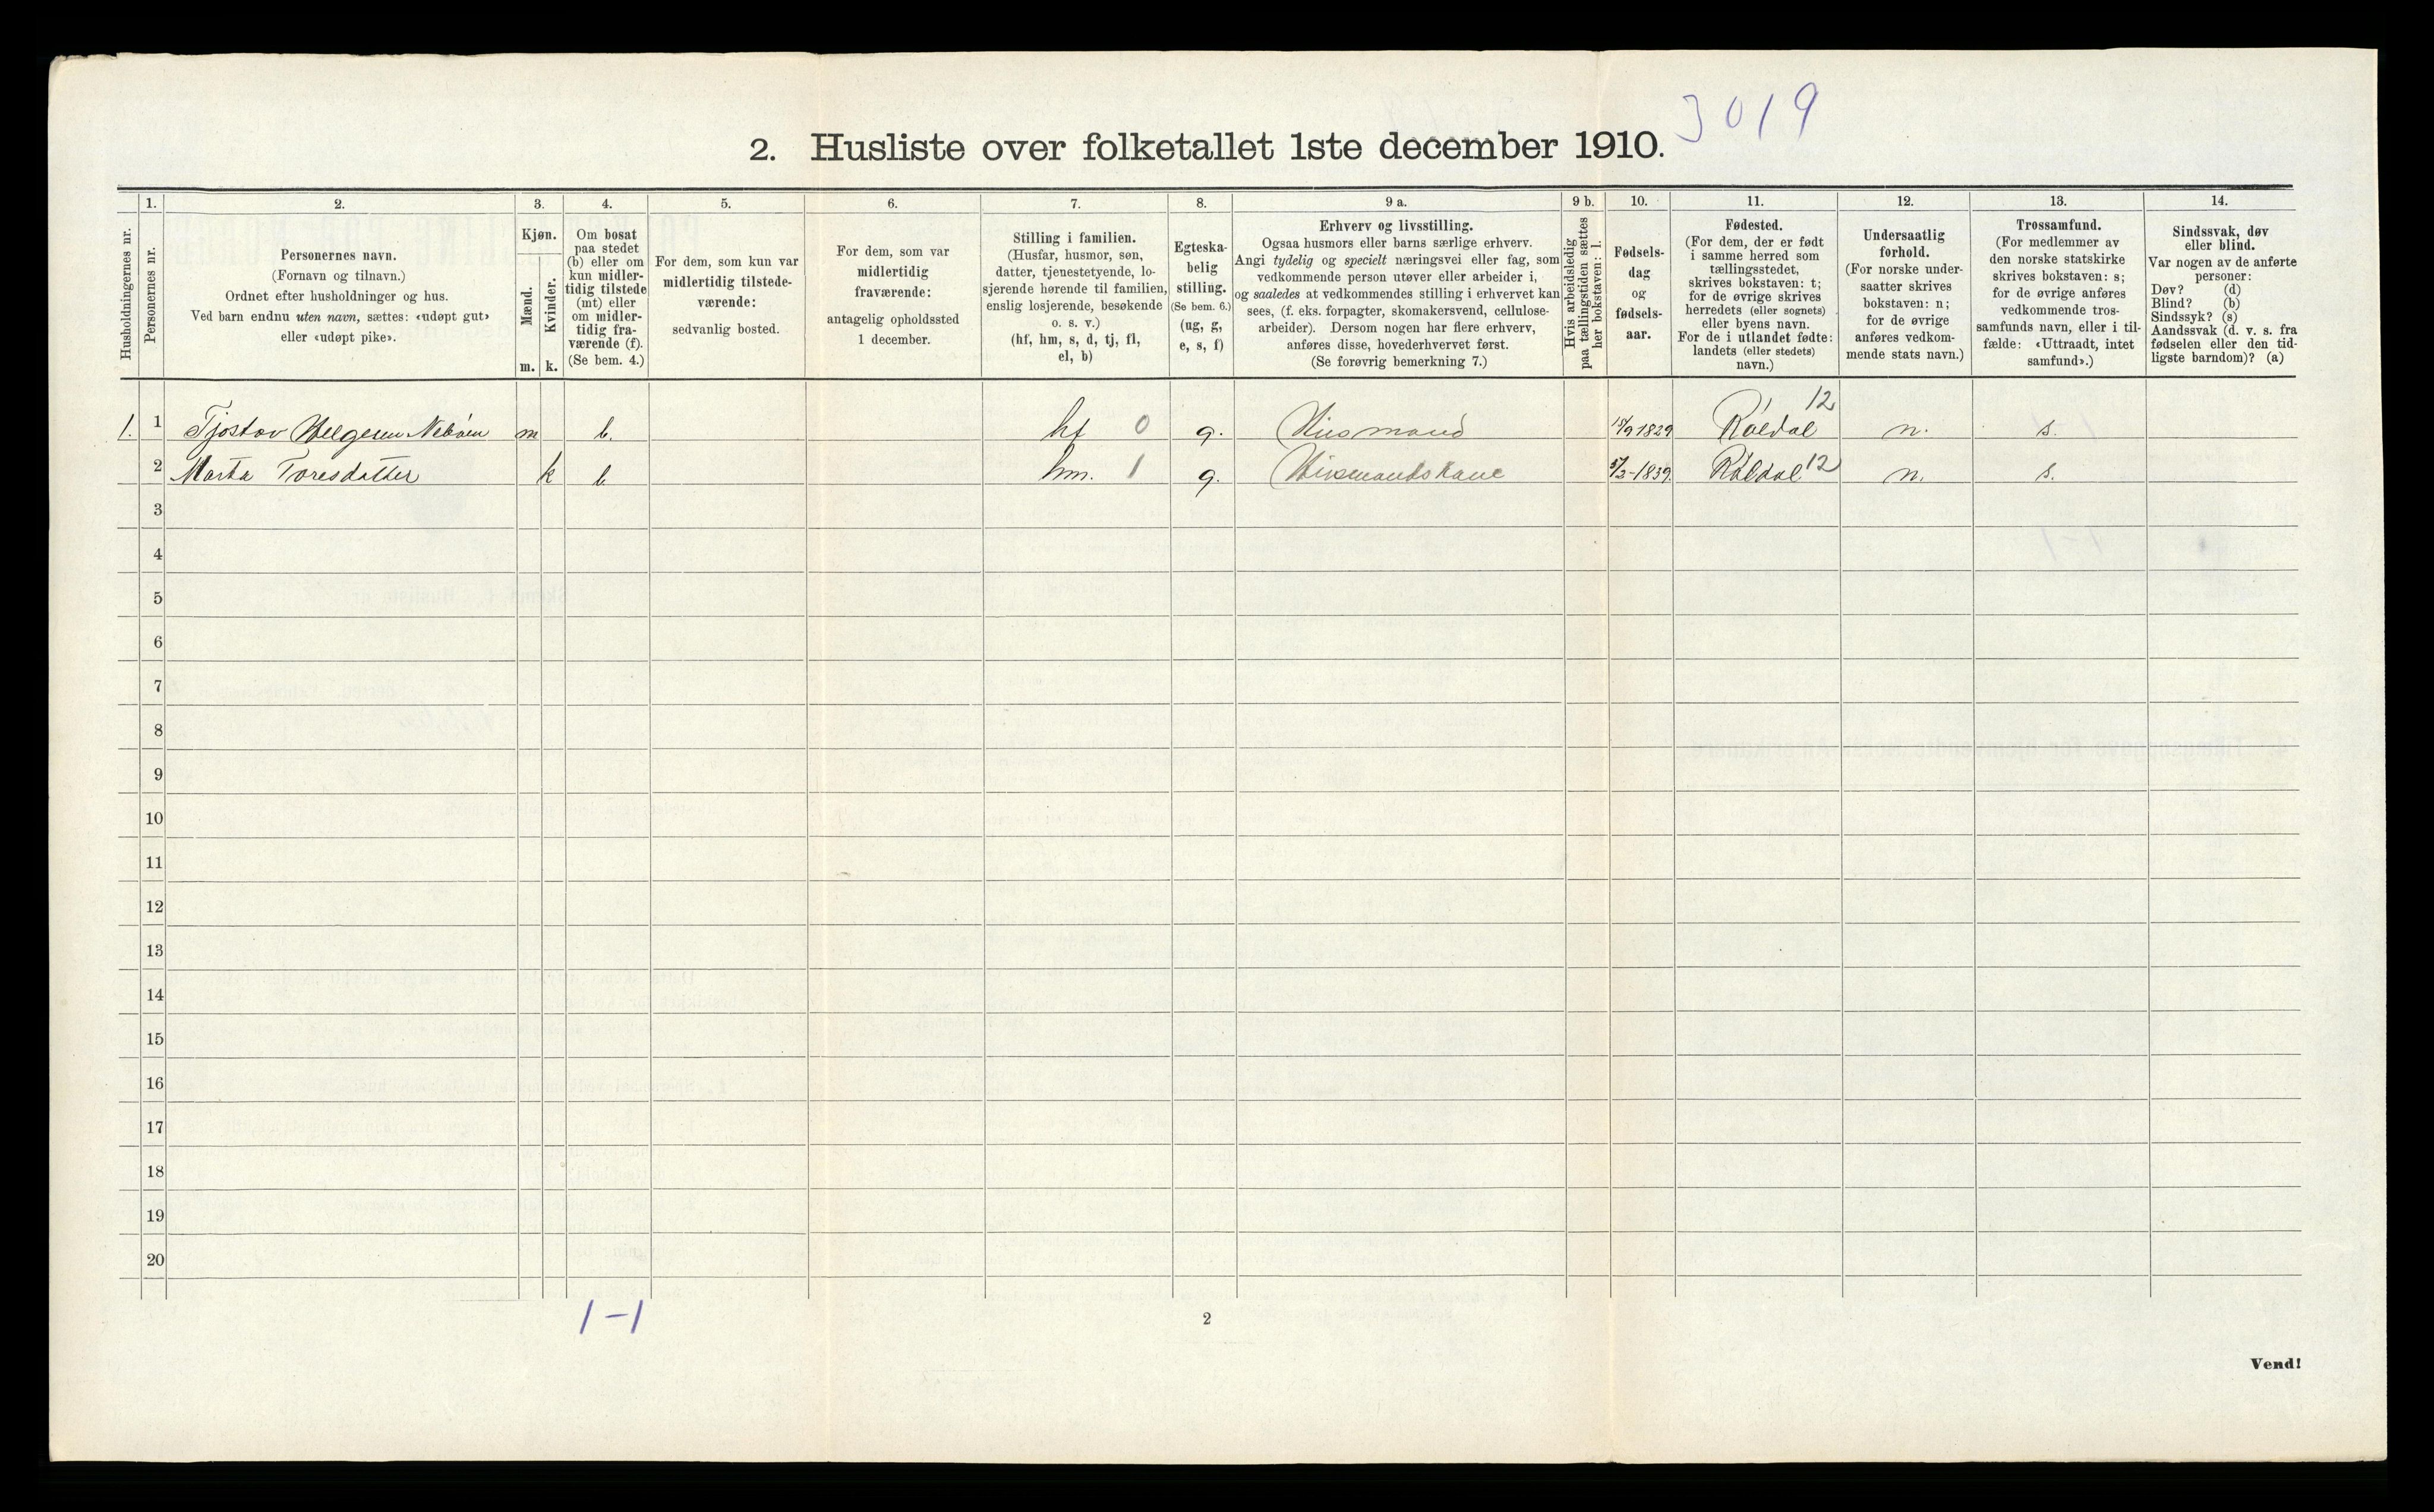 3019
2. Husliste over folketallet 1ste december 1910.
Husholdningernes nr.
1.
Personernes nr.
2.
Personernes navn.
(Fornavn og tilnavn.)
Ordnet efter husholdninger og hus.
Ved barn endnu uten navn, sættes: «udøpt gut»
eller «udøpt pike».
3.
Kjøn.
Mænd.
Kvinder.
m. k.
4.
Om bosat
paa stedet
(b) eller om
kun midler-
tidig tilstede
(mt) eller
om midler-
tidig fra-
værende (f).
(Se bem. 4.)
5.
For dem, som kun var
midlertidig tilstede-
værende:
sedvanlig bosted.
6.
For dem, som var
midlertidig
fraværende:
antagelig opholdssted
1 december.
7.
Stilling i familien.
(Husfar, husmor, søn,
datter, tjenestetyende, lo-
sjerende hørende til familien,
enslig losjerende, besøkende
o. s. v.)
(hf, hm, s, d, tj, fl,
el, b)
8.
Egteska-
belig
stilling.
(Se bem. 6.)
(ug, g,
e, s, f)
9 a.
Erhverv og livsstilling.
Ogsaa husmors eller barns særlige erhverv.
Angi tydelig og specielt næringsvei eller fag, som
vedkommende person utøver eller arbeider i,
og saaledes at vedkommendes stilling i erhvervet kan
sees, (f. eks. forpagter, skomakersvend, cellulose-
arbeider). Dersom nogen har flere erhverv,
anføres disse, hovederhvervet først.
(Se forøvrig bemerkning 7.)
9 b.
Hvis arbeidsledig
paa tællingstiden sættes
her bokstaven: l.
10.
Fødsels-
dag
og
fødsels-
aar.
11.
Fødested.
(For dem, der er født
i samme herred som
tællingsstedet,
skrives bokstaven: t;
for de øvrige skrives
herredets (eller sognets)
eller byens navn.
For de i utlandet fødte:
landets (eller stedets)
navn.)
12.
Undersaatlig
forhold.
(For norske under-
saatter skrives
bokstaven: n;
for de øvrige
anføres vedkom-
mende stats navn.)
13.
Trossamfund.
(For medlemmer av
den norske statskirke
skrives bokstaven: s;
for de øvrige anføres
vedkommende tros-
samfunds navn, eller i til-
fælde: «Uttraadt, intet
samfund».)
14.
Sindssvak, døv
eller blind.
Var nogen av de anførte
personer:
Døv? (d)
Blind? (b)
Sindssyk? (s)
Aandssvak (d. v. s. fra
fødselen eller den tid-
ligste barndom)? (a)
1. 1 Tjøstov Helgesen m b. hf 0 g. Husmand 1829 Røldal 12 n. s.
2 Marta Toresdatter k b hm. 1 g. Husmandskone 5/3-1839. Røldal 12 n. s.
3
4
5
6
7
8
9
10
11
12
13
14
15
16
17
18
19
20
1-1
2
Vend!